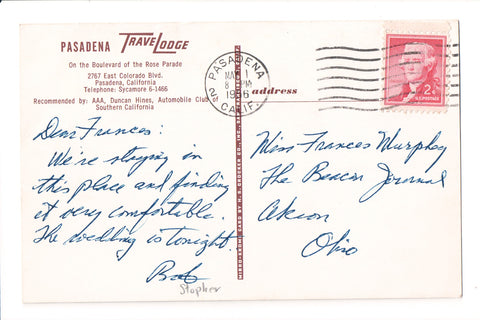 PASADENA TRAVELODGE
On the Boulevard of the Rose Parade
2767 East Colorado Blvd.
Pasadena, California
Telephone: Sycamore 6-1466
Recommended by: AAA, Duncan Hines, Automobile Club of
Southern California
Dear Frances:
We're staying in
this place and finding
it very comfortable.
The wedding is tonight.
Bob
Stopher
PASADENA
MAY 1
8 PM
1956
2 CALIF.
address
2¢
U.S. POSTAGE
Miss Frances Murphey
The Beacon Journal
Akron
Ohio